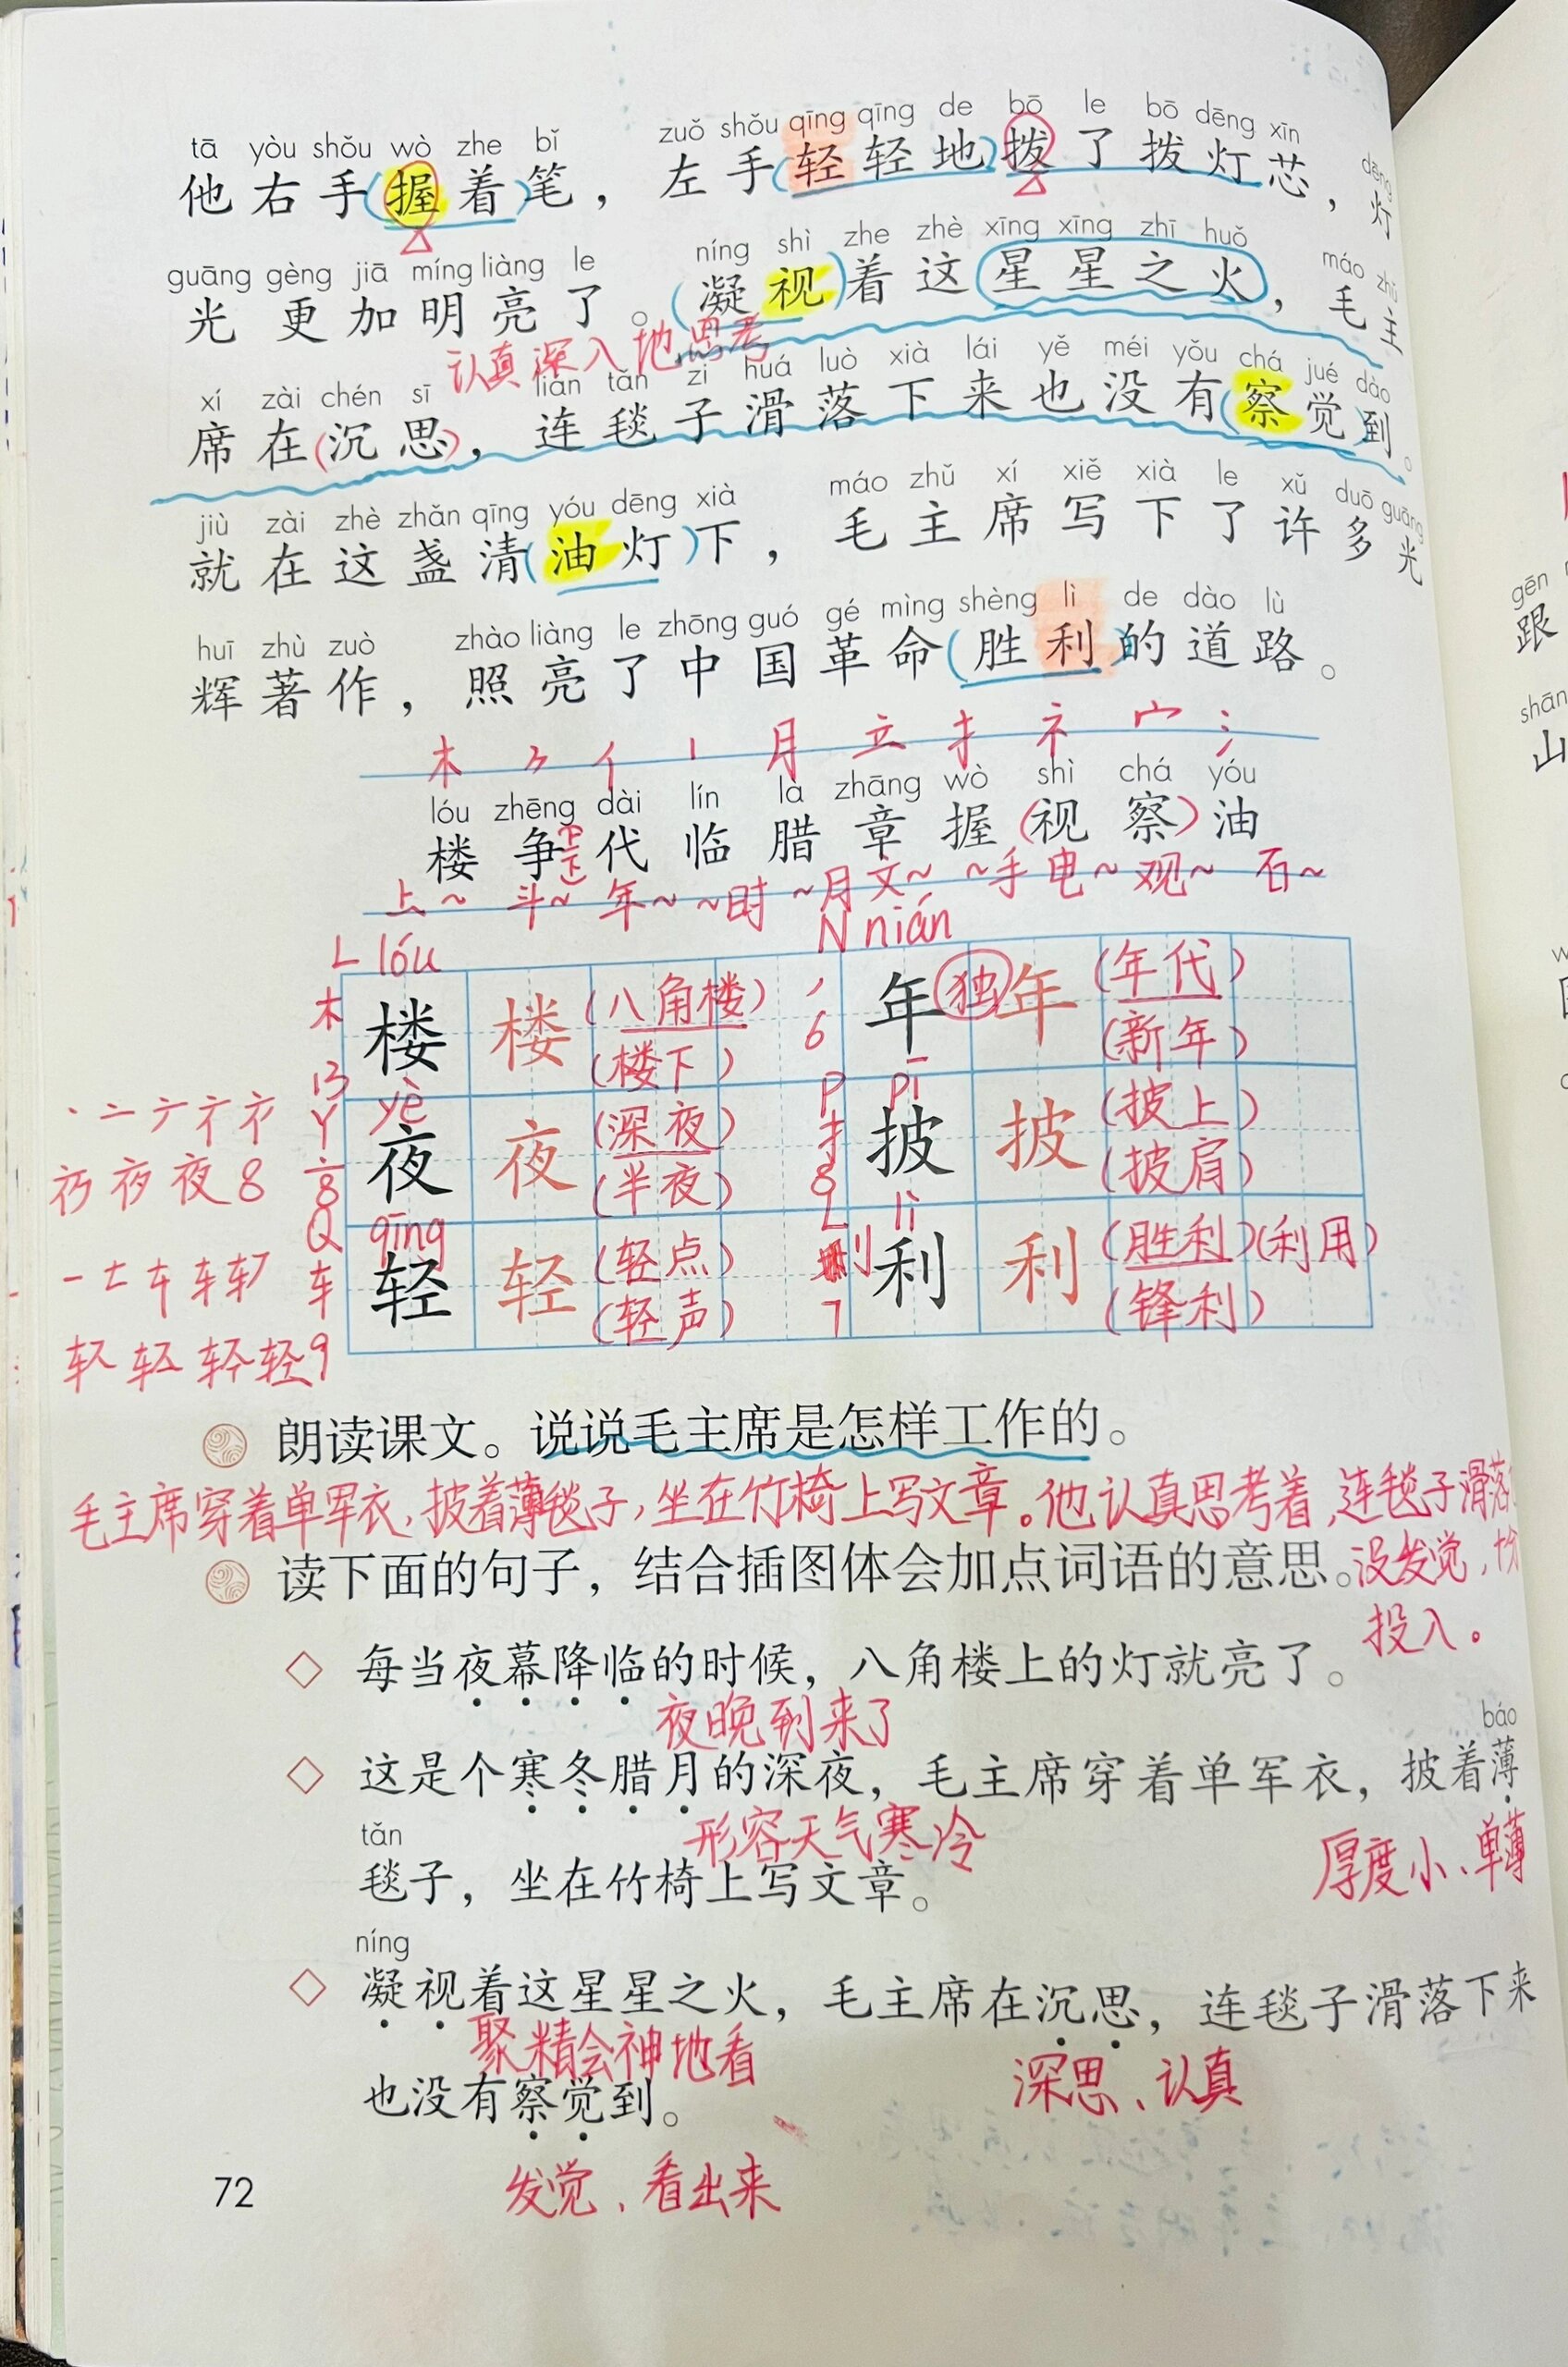 tā yòu shǒu wò zhe bǐ zuǒ shǒu qīng qīng de bō le bō dēng xīn dēng
他右手(握着)笔，左手(轻轻地)拨了拨灯芯，灯
guāng gèng jiā míng liàng le níng shì zhe zhè xīng xīng zhī huǒ máo zhǔ
光更加明亮了。(凝视)着这星星之火，毛主
认真深入地思考
xí zài chén sī lián tǎn zi huá luò xià lái yě méi yǒu chá jué dào
席在(沉思)，连毯子滑落下来也没有(察觉)到。
jiù zài zhè zhǎn qīng yóu dēng xià máo zhǔ xí xiě xià le xǔ duō guāng
就在这盏清(油灯)下，毛主席写下了许多光
huī zhù zuò zhào liàng le zhōng guó gé mìng shèng lì de dào lù
辉著作，照亮了中国革命(胜利)的道路。
木 ⺈ 亻 丨 月 立 扌 礻 宀 氵
lóu zhēng dài lín là zhāng wò shì chá yóu
楼 争 代 临 腊 章 握 (视 察) 油
上~ 斗~ 年~ ~时 ~月 文~ ~手 电~ 观~ 石~
L lóu N nián
木 楼 楼 (八角楼) 丿 年 独 年 (年代)
13 (楼下) 6 (新年)
Y yè P pī
丶 亠 亠 夜 夜 (深夜) 扌 披 披 (披上)
夜 夜 8 8 (半夜) 8 (披肩)
Q qīng L lì
一 车 轻 轻 (轻点) 刂 利 利 (胜利) (利用)
轻 9 (轻声) 7 (锋利)
朗读课文。说说毛主席是怎样工作的。
毛主席穿着单军衣，披着薄毯子，坐在竹椅上写文章。他认真思考着，连毯子滑落
读下面的句子，结合插图体会加点词语的意思。
没发觉，十分
投入。
◇ 每当夜幕降临的时候，八角楼上的灯就亮了。
夜晚到来了
báo
◇ 这是个寒冬腊月的深夜，毛主席穿着单军衣，披着薄
形容天气寒冷
厚度小、单薄
tǎn
毯子，坐在竹椅上写文章。
níng
◇ 凝视着这星星之火，毛主席在沉思，连毯子滑落下来
聚精会神地看
深思、认真
也没有察觉到。
发觉、看出来
72
gēn
跟
shān
山